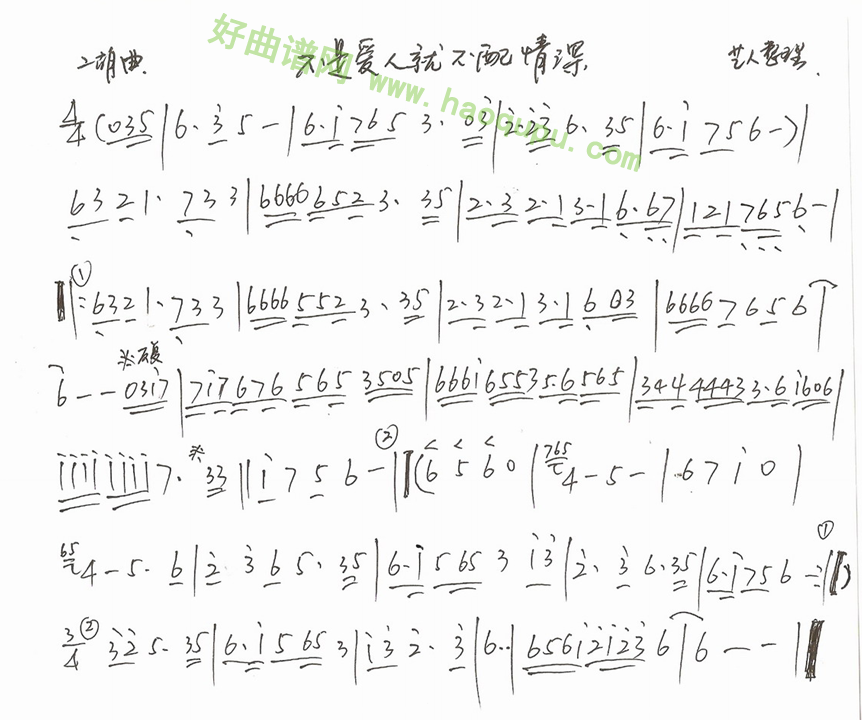 好曲谱网 www.haoqupu.com
二胡曲 不是爱人就不配情深 艺人整理
4/4 (035|6·3 5 -|6·i 765 3· 03|2·23 6· 35|6·i 756-)|
6321· 733|6666 652 3· 35|2·32·13·16·67|121765 6-|
① ‖:6321·733|6666 552 3· 35|2·32·13·16 03|6666 7 656|
6 - - ※反复 03i7|7i7676 565 3505|666i655356565|3444444433·6i606|
iiiiiiii7· ※ 33‖i 7 5 6 - ② ‖(6 5 6 0|765 4 - 5 -|·67i0|
65 4 - 5· 6|2· 3 6 5· 35|6·i 5 65 3 i3|2· 3 6· 35|6·i756 -:① ‖)
3/4 ② 32 5· 35|6·i 5 65 3|i3 2· 3|6··|656i2i23 6|6 - - ‖